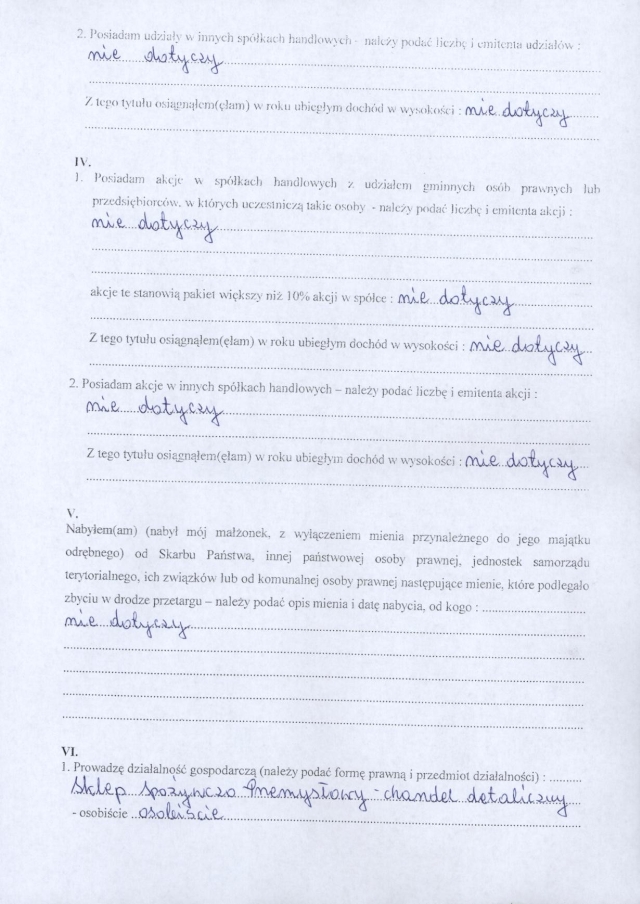 2. Posiadam udziały w innych spółkach handlowych - należy podać liczbę i emitenta udziałów :
nie dotyczy
Z tego tytułu osiągnąłem(ęłam) w roku ubiegłym dochód w wysokości : nie dotyczy
IV.
1. Posiadam akcje w spółkach handlowych z udziałem gminnych osób prawnych lub
przedsiębiorców, w których uczestniczą takie osoby - należy podać liczbę i emitenta akcji :
nie dotyczy
akcje te stanowią pakiet większy niż 10% akcji w spółce : nie dotyczy
Z tego tytułu osiągnąłem(ęłam) w roku ubiegłym dochód w wysokości : nie dotyczy
2. Posiadam akcje w innych spółkach handlowych – należy podać liczbę i emitenta akcji :
nie dotyczy
Z tego tytułu osiągnąłem(ęłam) w roku ubiegłym dochód w wysokości : nie dotyczy
V.
Nabyłem(am) (nabył mój małżonek, z wyłączeniem mienia przynależnego do jego majątku
odrębnego) od Skarbu Państwa, innej państwowej osoby prawnej, jednostek samorządu
terytorialnego, ich związków lub od komunalnej osoby prawnej następujące mienie, które podlegało
zbyciu w drodze przetargu – należy podać opis mienia i datę nabycia, od kogo : ..........
nie dotyczy
VI.
1. Prowadzę działalność gospodarczą (należy podać formę prawną i przedmiot działalności) : ..........
Sklep spożywczo Przemysłowy - handel detaliczny
- osobiście osobiście